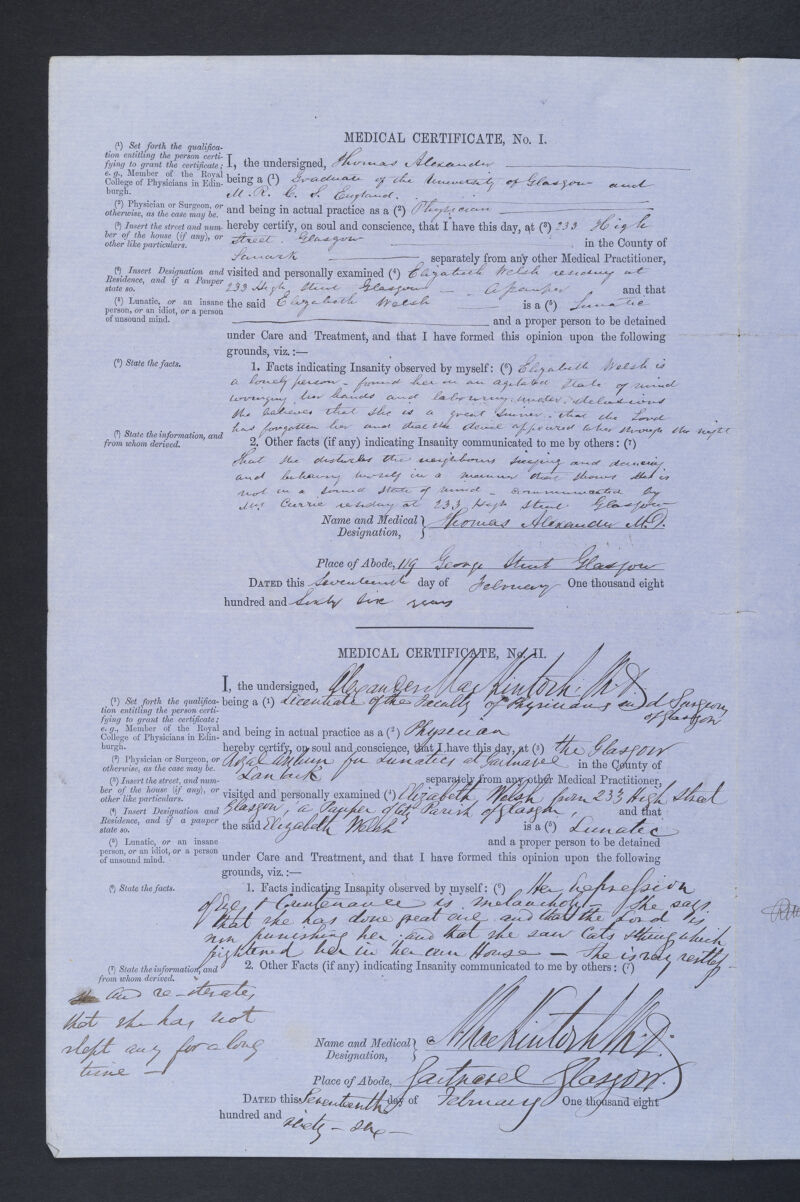 MEDICAL CERTIFICATE, No. I.
(¹) Set forth the qualifica-
tion entitling the person certi-
fying to grant the certificate;
e. g., Member of the Royal
College of Physicians in Edin-
burgh.
(²) Physician or Surgeon, or
otherwise, as the case may be.
(³) Insert the street and num-
ber of the house (if any), or
other like particulars.
(⁴) Insert Designation and
Residence, and if a Pauper
state so.
(⁵) Lunatic, or an insane
person, or an idiot, or a person
of unsound mind.
I, the undersigned, Thomas Alexander
being a (¹) Graduate of the University of Glasgow and
M. R. C. S. England.
and being in actual practice as a (²) Physician
hereby certify, on soul and conscience, that I have this day, at (³) 233 High
Street. Glasgow in the County of
Lanark separately from any other Medical Practitioner,
visited and personally examined (⁴) Elizabeth Welsh residing at
233 High Street Glasgow - a pauper and that
the said Elizabeth Welsh is a (⁵) Lunatic
and a proper person to be detained
under Care and Treatment, and that I have formed this opinion upon the following
grounds, viz.:—
(⁶) State the facts.
1. Facts indicating Insanity observed by myself: (⁶) Elizabeth Welsh is
a lonely person - found her in an agitated state of mind
wringing her hands and labouring under delusions
She believes that she is a great sinner. that the Lord
has forgotten her and that the devil appeared to her through the night
(⁷) State the information, and
from whom derived.
2. Other facts (if any) indicating Insanity communicated to me by others: (⁷)
That she disturbs the neighbours singing and dancing
and behaving herself in a manner that shows she is
not in a sound state of mind - communicated by
Mrs Currie residing at 233 High Street Glasgow
Name and Medical Designation, Thomas Alexander M.D.
Place of Abode, 119 George Street Glasgow
DATED this Seventeenth day of February One thousand eight
hundred and Sixty six years
MEDICAL CERTIFICATE, No. II.
(¹) Set forth the qualifica-
tion entitling the person certi-
fying to grant the certificate;
e. g., Member of the Royal
College of Physicians in Edin-
burgh.
(²) Physician or Surgeon, or
otherwise, as the case may be.
(³) Insert the street, and num-
ber of the house (if any), or
other like particulars.
(⁴) Insert Designation and
Residence, and if a pauper
state so.
(⁵) Lunatic, or an insane
person, or an idiot, or a person
of unsound mind.
I, the undersigned, Alexander MacKintosh, M.D.
being a (¹) Licentiate of the Faculty of Physicians and Surgeons
of Glasgow
and being in actual practice as a (²) Physician
hereby certify, on soul and conscience, that I have this day, at (³) the Glasgow
Royal Asylum for Lunatics at Gartnavel in the County of
Lanark separately from any other Medical Practitioner,
visited and personally examined (⁴) Elizabeth Welsh from 233 High Street
Glasgow, a Pauper of City Parish of Glasgow, and that
the said Elizabeth Welsh is a (⁵) Lunatic
and a proper person to be detained
under Care and Treatment, and that I have formed this opinion upon the following
grounds, viz.:—
(⁶) State the facts.
1. Facts indicating Insanity observed by myself: (⁶) Her expression
of Eye & Countenance is melancholy - She says
that she has done great evil and that the Lord is
now punishing her. and that she saw Cats & things which
frightened her in her own House - She is very restless
(⁷) State the information, and
from whom derived.
2. Other Facts (if any) indicating Insanity communicated to me by others: (⁷)
and re-iterates
that she has not
slept any for a long
time -
Name and Medical Designation, A MacKintosh M.D.
Place of Abode, Gartnavel Glasgow.
DATED this Seventeenth day of February One thousand eight
hundred and sixty - six -